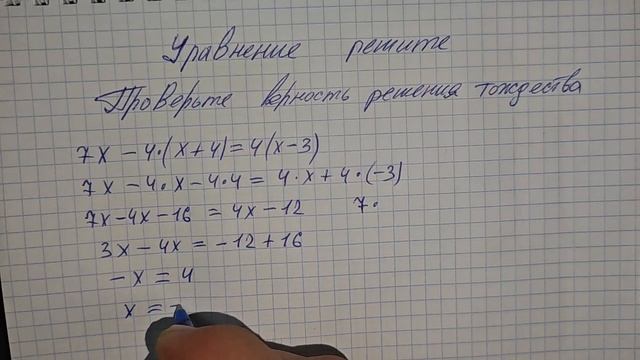 Уравнение решите
Проверьте верность решения тождества
7x - 4·(x+4)=4(x-3)
7x - 4·x - 4·4 = 4·x + 4·(-3)
7x-4x-16 = 4x-12 7·
3x - 4x = -12+16
-x = 4
x = -